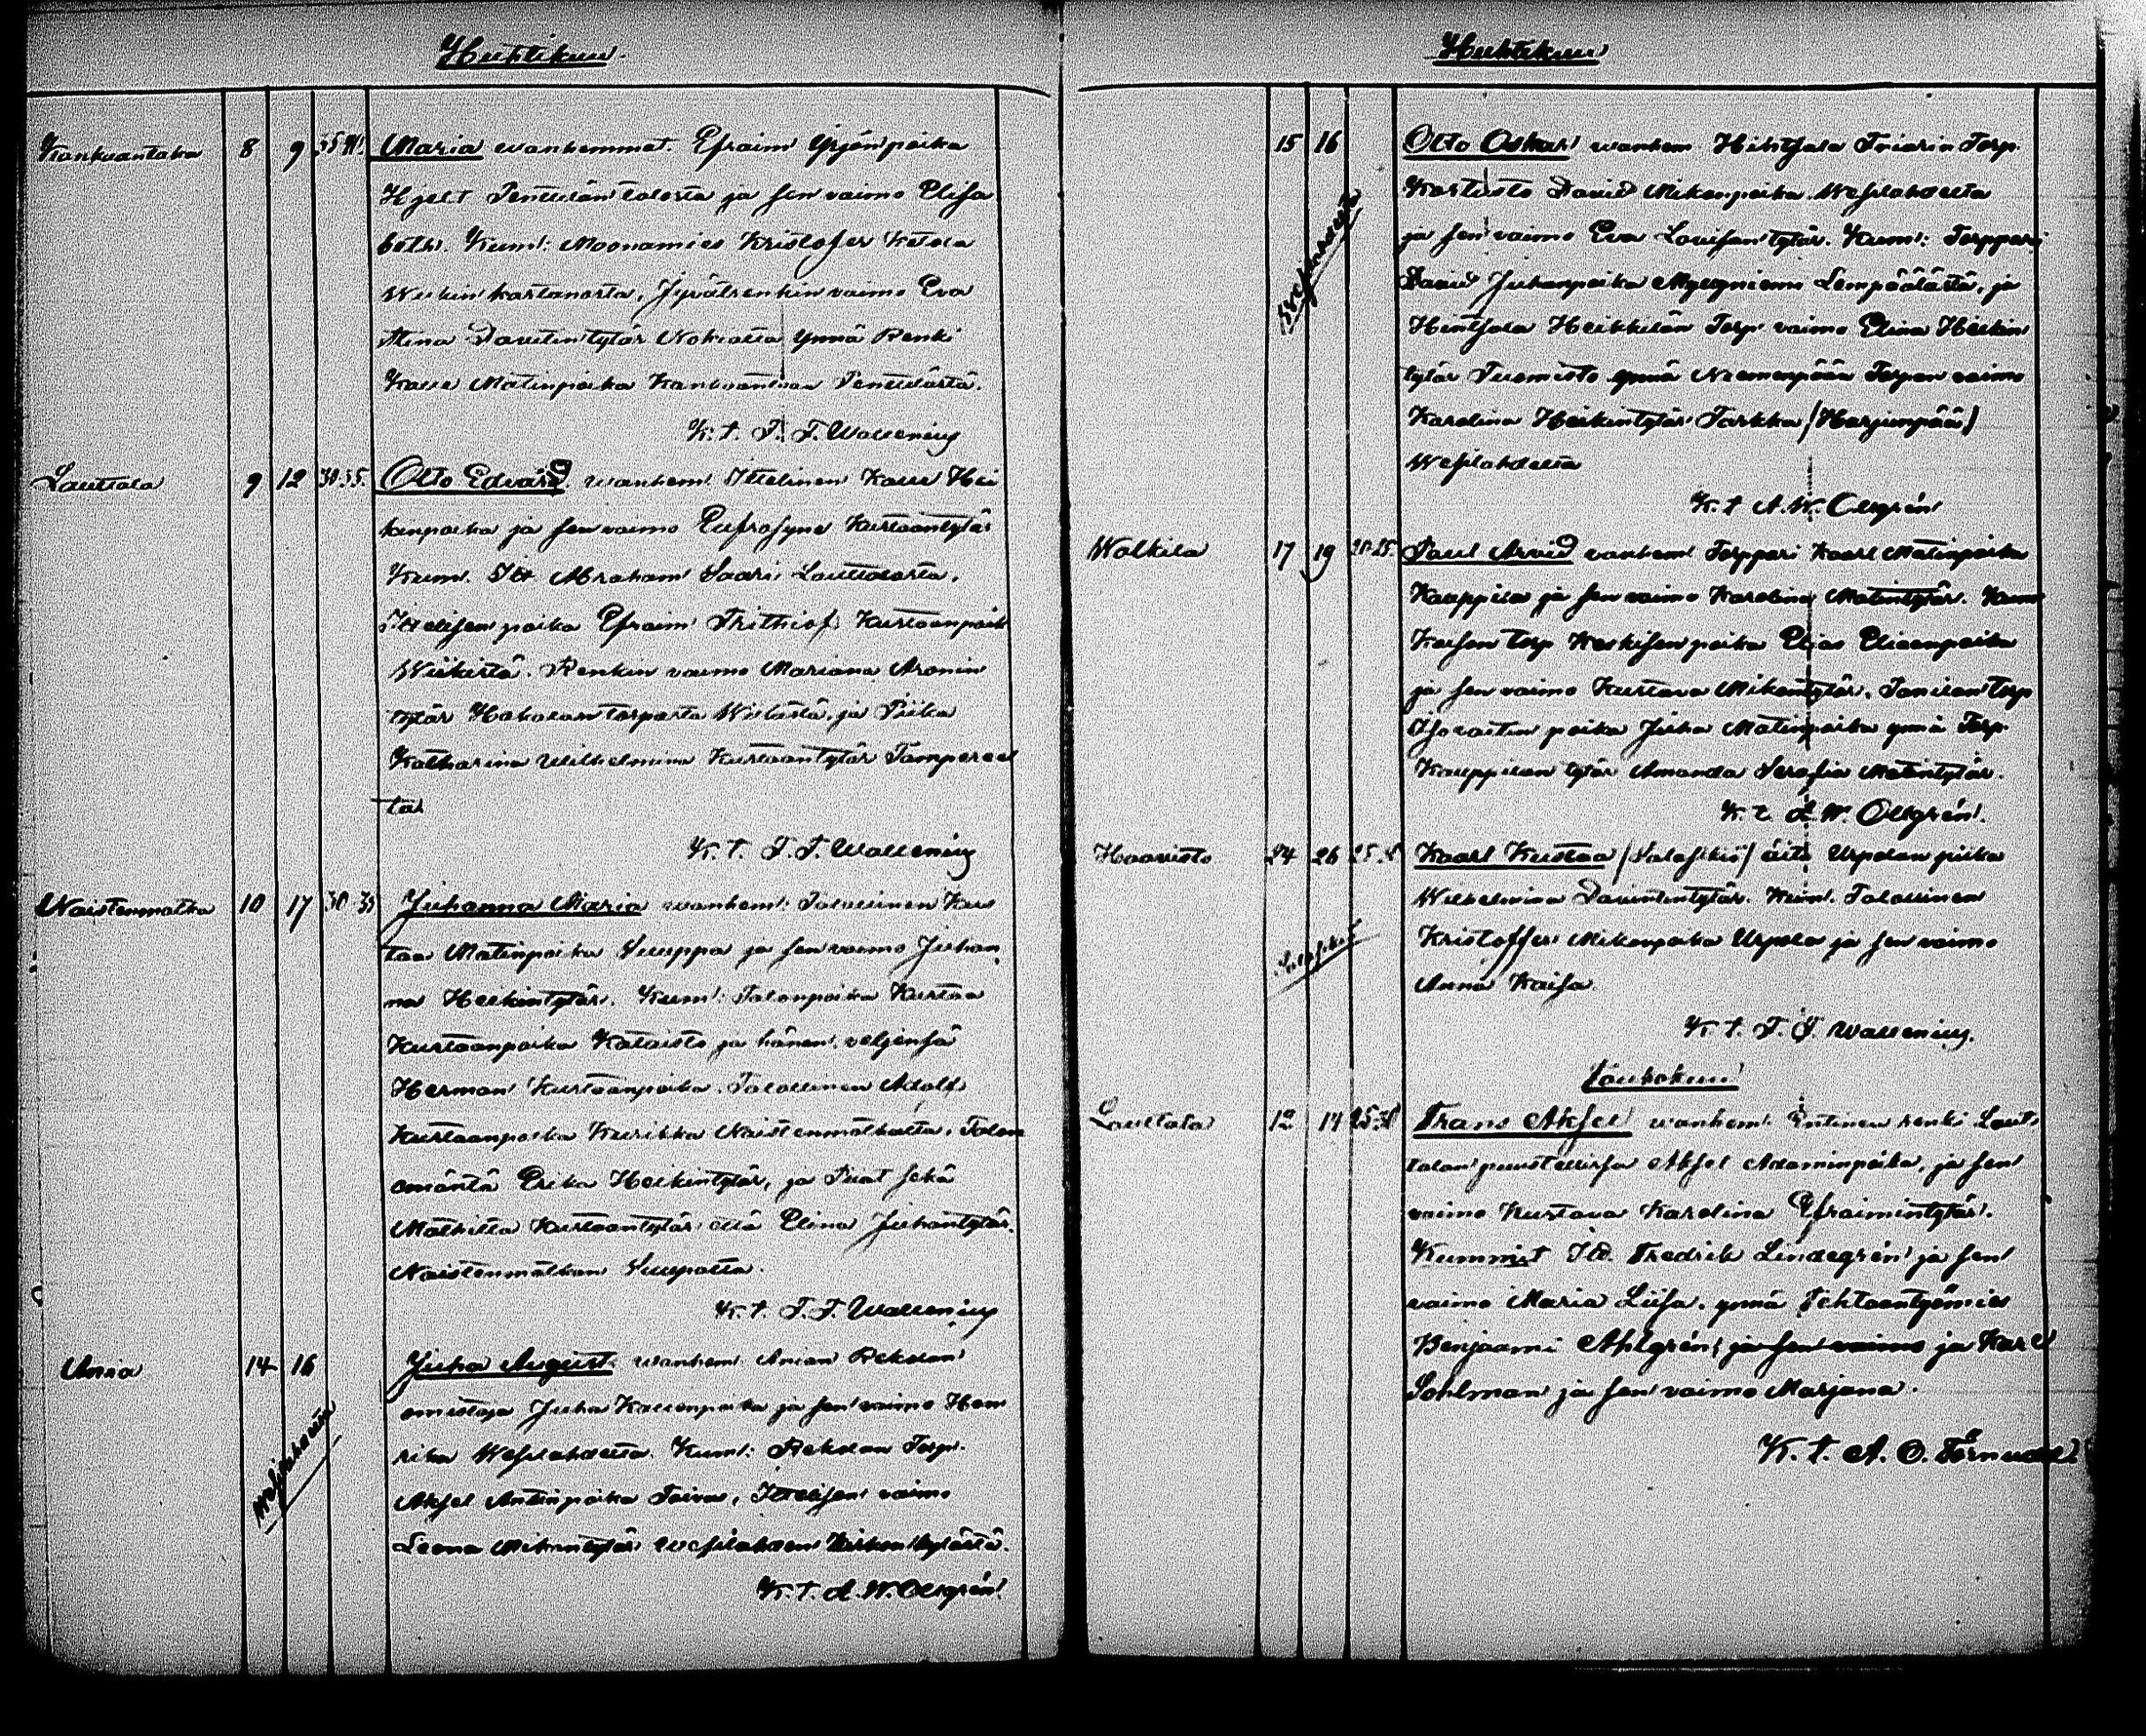 Huhtikuu
Kankaantaka 8 9 35.40. Maria wanhemmat. Efraim Yrjönpoika
Hjelt Penttilän talosta ja sen vaimo Elisa
beth. Kum: Moonamies Kristofer Ketola
Wiikin kartanosta, Jyvätrenkin vaimo Eva
Stina Davidintytär Nokialta ynnä Renki
Kalle Matinpoika Kankaantaa Penttilästä.
K. t. F. F. Wallenius
Lauttala 9 12 30.35. Otto Edvard. wanhem: Ittelinen Kalle Hei
kinpoika ja sen vaimo Eufrosyne Kustaantytär
Kum. Itt Abraham Saari Lauttalasta,
Ittelisen poika Efraim Frithiof Kustaanpoik
Wiikistä. Renkin vaimo Mariana Aronin
tytär Hakalan torpasta Wiikistä, ja Piika
Katharina Wilhelmina Kustaantytär Tampereel
ta
K. t. F. F. Wallenius
Naistenmatka 10 17 30 35 Juhanna Maria wanhem: Talollinen Kus
taa Matinpoika Suuppa ja sen vaimo Juhan
na Heikintytär. Kum: Talonpoika Kustaa
Kustaanpoika Kataisto ja hänen veljensä
Herman Kustaanpoika. Talollinen Adolf
Kustaanpoika Kurikka Naistenmatkalta, Talon
emäntä Erika Heikintytär, ja Piiat sekä
Mathilta Kustaantytär että Elina Juhantytär
Naistenmatkan Suupalta.
K. t. F. F. Wallenius
Ania 14 16 Juha August. wanhem Anian Rekolan
omistaja Juha Kallenpoika ja sen vaimo Hen
rika Wesilahdelta. Kum: Rekolan Torp.
Aksel Antinpoika Toivo, Ittelisen vaimo
Leena Mikontytär Wesilahden Kirkonkylästä.
Wesilahdelta
K. t. A. W. Ollgrén
Huhtikuu
15 16 Otto Oskar wanhem. Hihtsala Friarin Torp.
Kortisto David Mikonpoika Wesilahdelta
ja sen vaimo Eva Lovisantytär. Kum: Torppari
David Juhanpoika Myllyniemi Lempäälästä, ja
Hintsala Heikkilän Torp vaimo Elina Heikin
tytär Tuomisto ynnä Niemenpään Torpan vaimo
Karolina Heikintytär Tarkka /Harjunpää/
Wesilahdelta
K. t A. W. Ollgrén
Walkila 17 19 20.25. Paul Arvid vanhem Torppari Kaarl Matinpoika
Kauppila ja sen vaimo Karolina Matintytär. Kum
Kaisan torp Keskisen poika Elias Eliaanpoika
ja sen vaimo Kustava Mikontytär. Tanilan torp
Isovaitin poika Juha Matinpoika ynnä Torp
Kauppilan tytär Amanda Serafia Matintytär.
K. t. A. W. Ollgrén.
Haavisto 24 26 Kaarl Kustaa /Salasikiö/ äiti Urpolan piika
Wilhelmina Davidintytär. Kum. Talollinen
Kristoffer Mikonpoika Urpola ja sen vaimo
Anna Kaisa
K. t. F. F. Wallenius.
Toukokuu
Lauttala 12 14 25.30 Frans Aksel wanhem. Entinen renki Laut
talan puustellissa Aksel Adaminpoika, ja sen
vaimo Kustava Karolina Efraimintytär.
Kummit Itt. Fredrik Lindegrén ja sen
vaimo Maria Liisa. ynnä Tehtaantyömies
Benjaami Ahlgrén ja sen vaimo ja Karl
Sohlman ja sen vaimo Marjana.
K. t. A. O. Törnudd